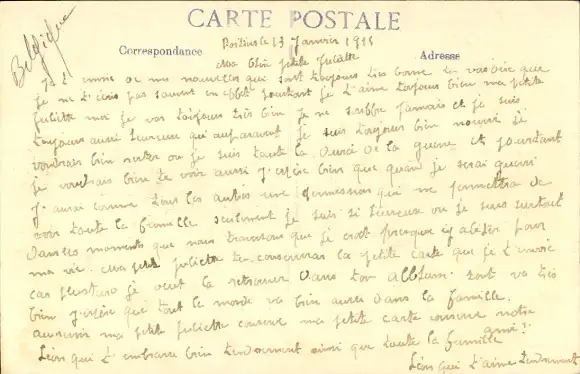 Belgique
CARTE POSTALE
Correspondance
Adresse
Poitiers le 13 Janvier 1915
Ma bien petite Juliette
Je t'envoie de mes nouvelles qui sont toujours très bonne tu vas dire que
je ne t'écris pas souvent en effet pourtant je t'aime toujours bien ma petite
Juliette moi je vas toujours très bien je ne souffre jamais et je suis
toujours aussi heureux qu'auparavant je suis toujours bien nourri je
voudrais bien rester ou je suis toute la durée de la guerre et pourtant
je voudrais bien te voir aussi j'espère bien que quand je serai guéri
j'aurai comme tous les autres une permission qui me permettra de
voir toute la famille seulement je suis si heureux ou je suis surtout
dans les moments que nous traversons que je croit presque y abiter pour
ma vie. Ma petite Juliette tu conserveras la petite carte que je t'envoie
car plus tard je veut la retrouver dans ton album. tout va très
bien j'espère que tout le monde va bien aussi dans la famille.
ma petite Juliette conserve ma petite carte comme notre
ami?
Léon qui t'embrasse bien tendrement ainsi que toute la famille
Léon qui t'aime tendrement